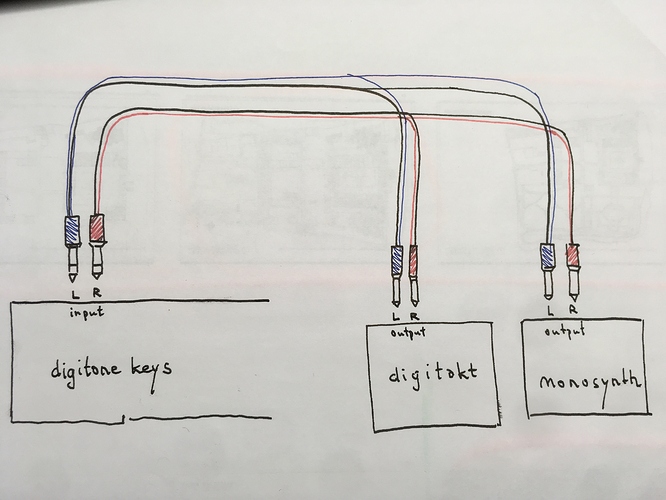 L R
input
digitone keys
L R
output
digitakt
L R
output
monosynth